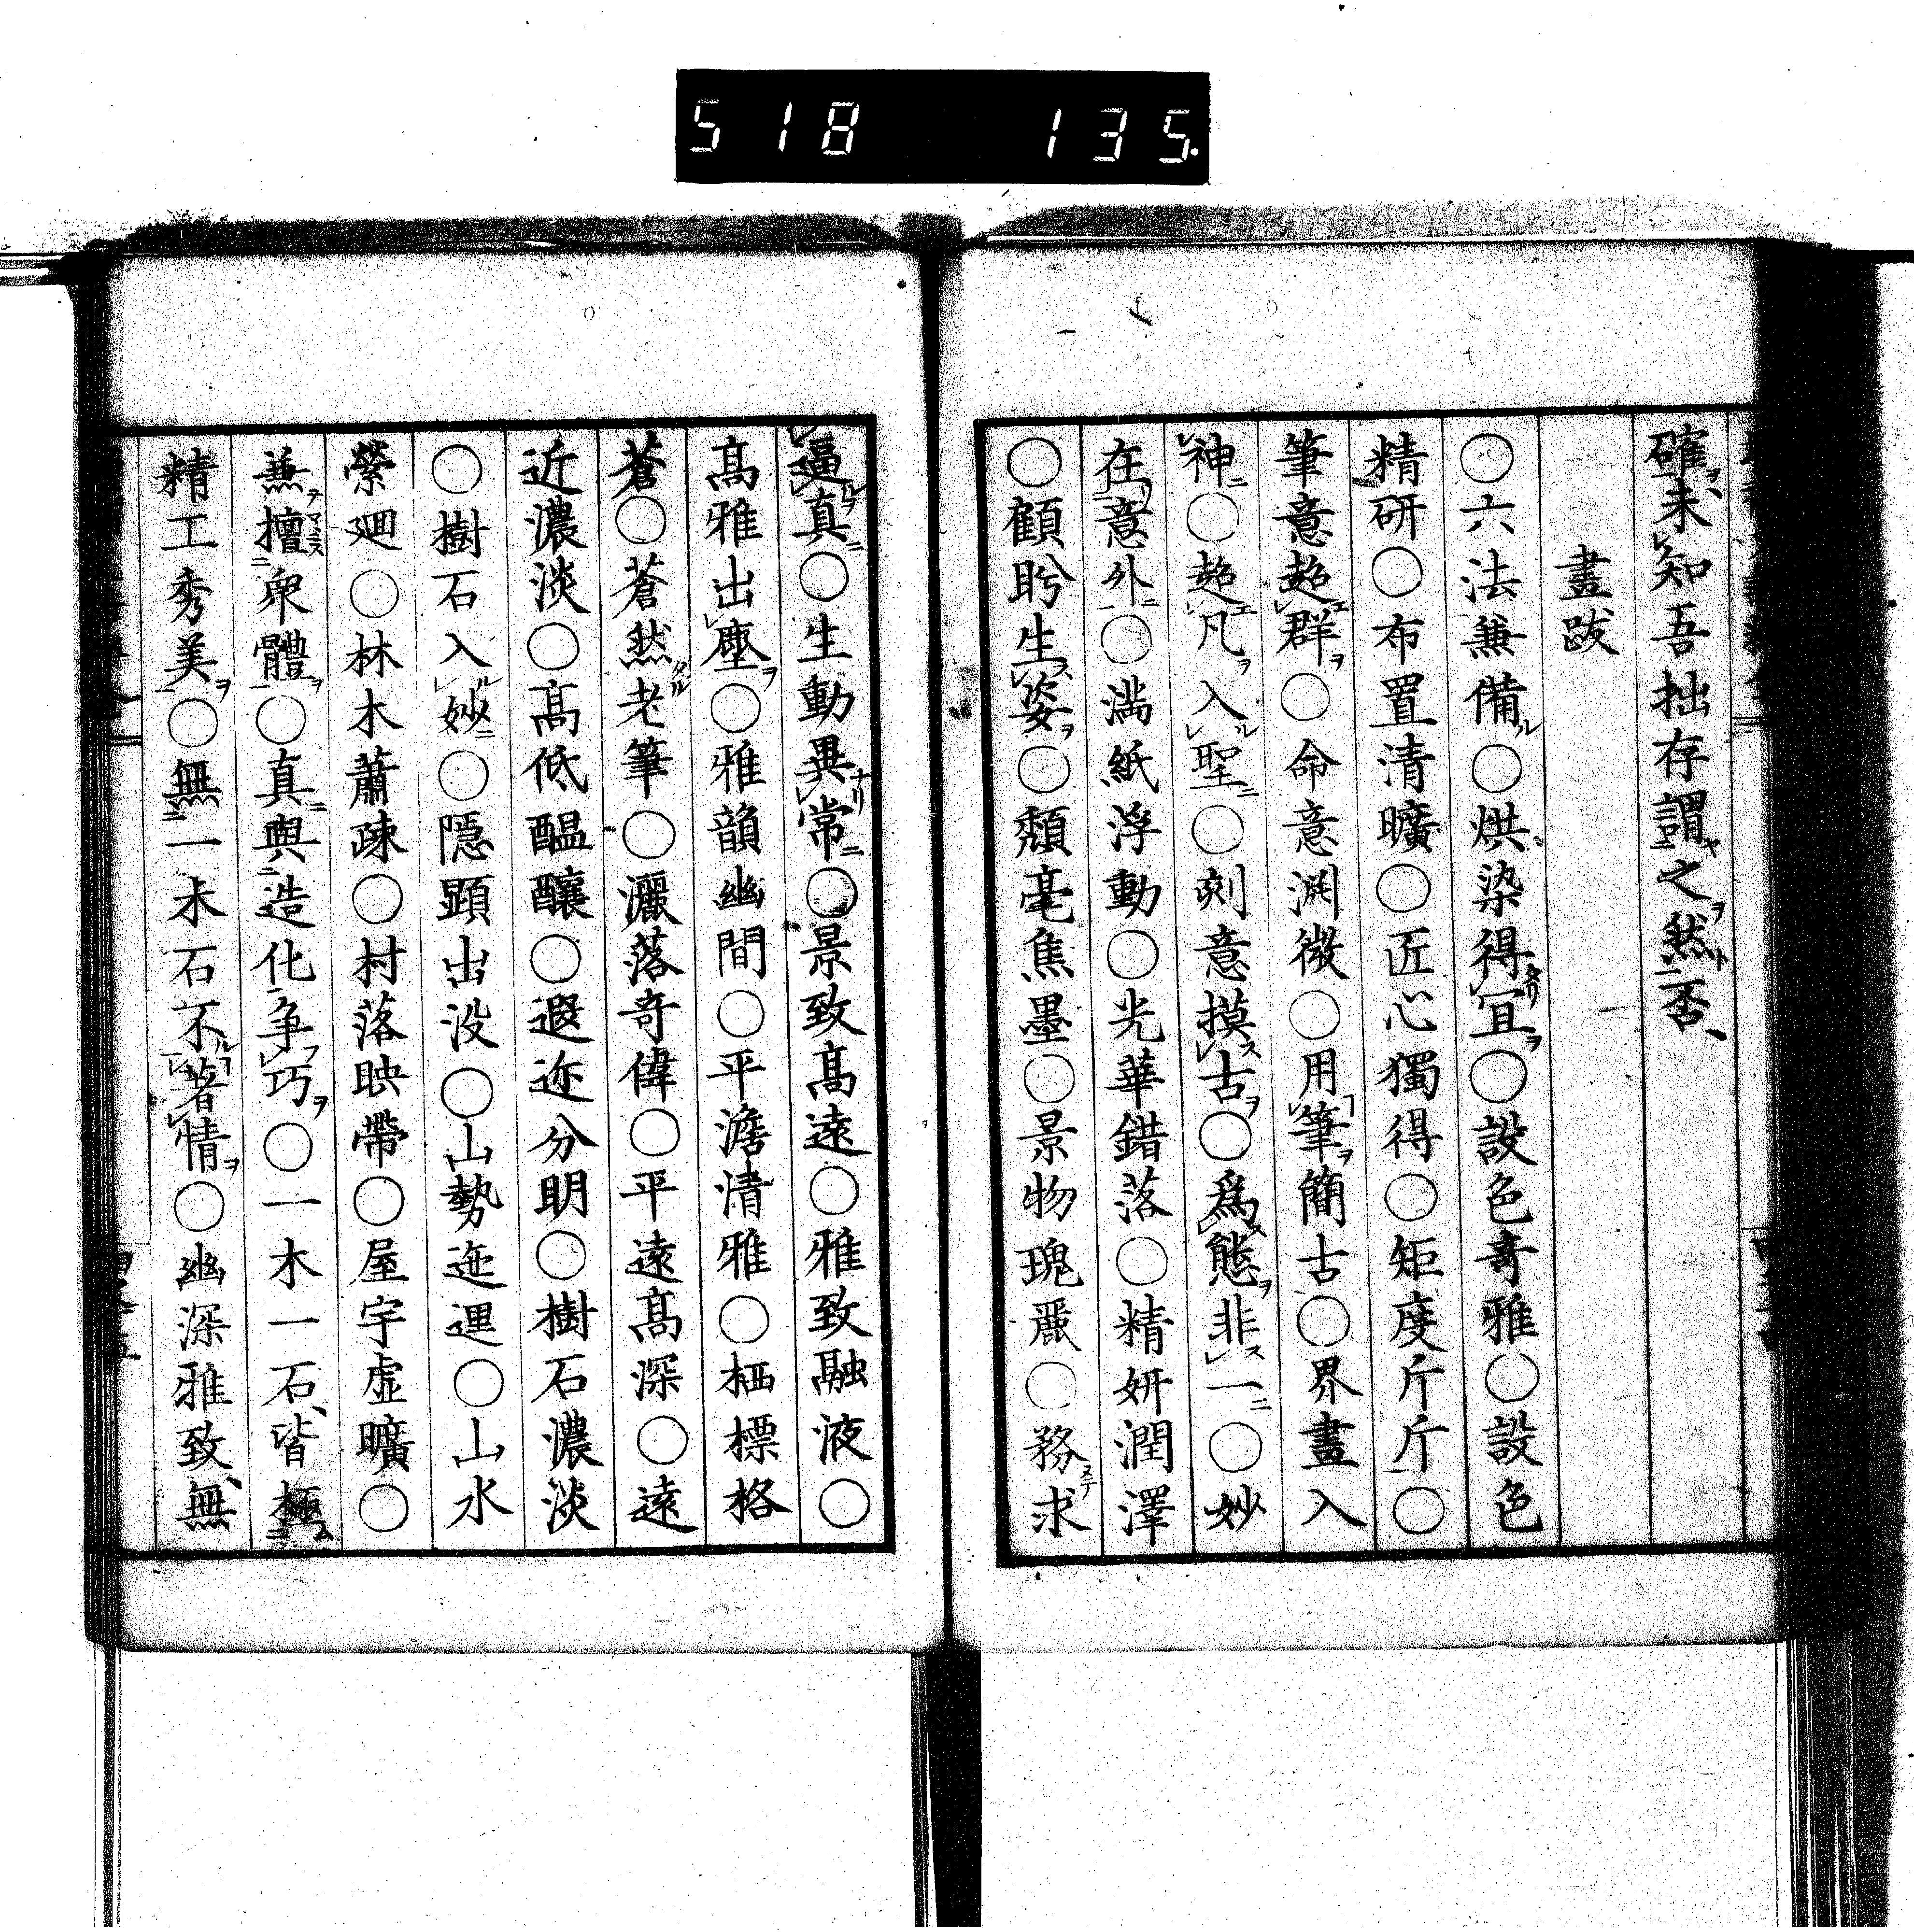 518 135
確未知吾拙存謂之然否
畫跋
○六法兼備○烘染得冝○設色奇雅○設色
精研○布置清曠○匠心獨得○矩度斤斤○
筆意超群○命意淵微○用筆簡古○界畫入
神○超凡入聖○刻意摸古○爲態非一○妙
在意外○滿紙浮動○光華錯落○精妍潤澤
○顧盻生姿○頹毫焦墨○景物瑰麗○務求
逼真○生動異常○景致高遠○雅致融液○
高雅出塵○雅韻幽間○平澹清雅○栖標格
蒼○蒼然老筆○灑落奇偉○平遠高深○遠
近濃淡○高低醞釀○遐迩分明○樹石濃淡
○樹石入妙○隱顯出没○山勢迤邐○山水
縈廻○林木蕭疎○村落映帶○屋宇虛曠○
兼擅衆體○真與造化争巧○一木一石皆極
精工秀美○無一木石不著情○幽深雅致無